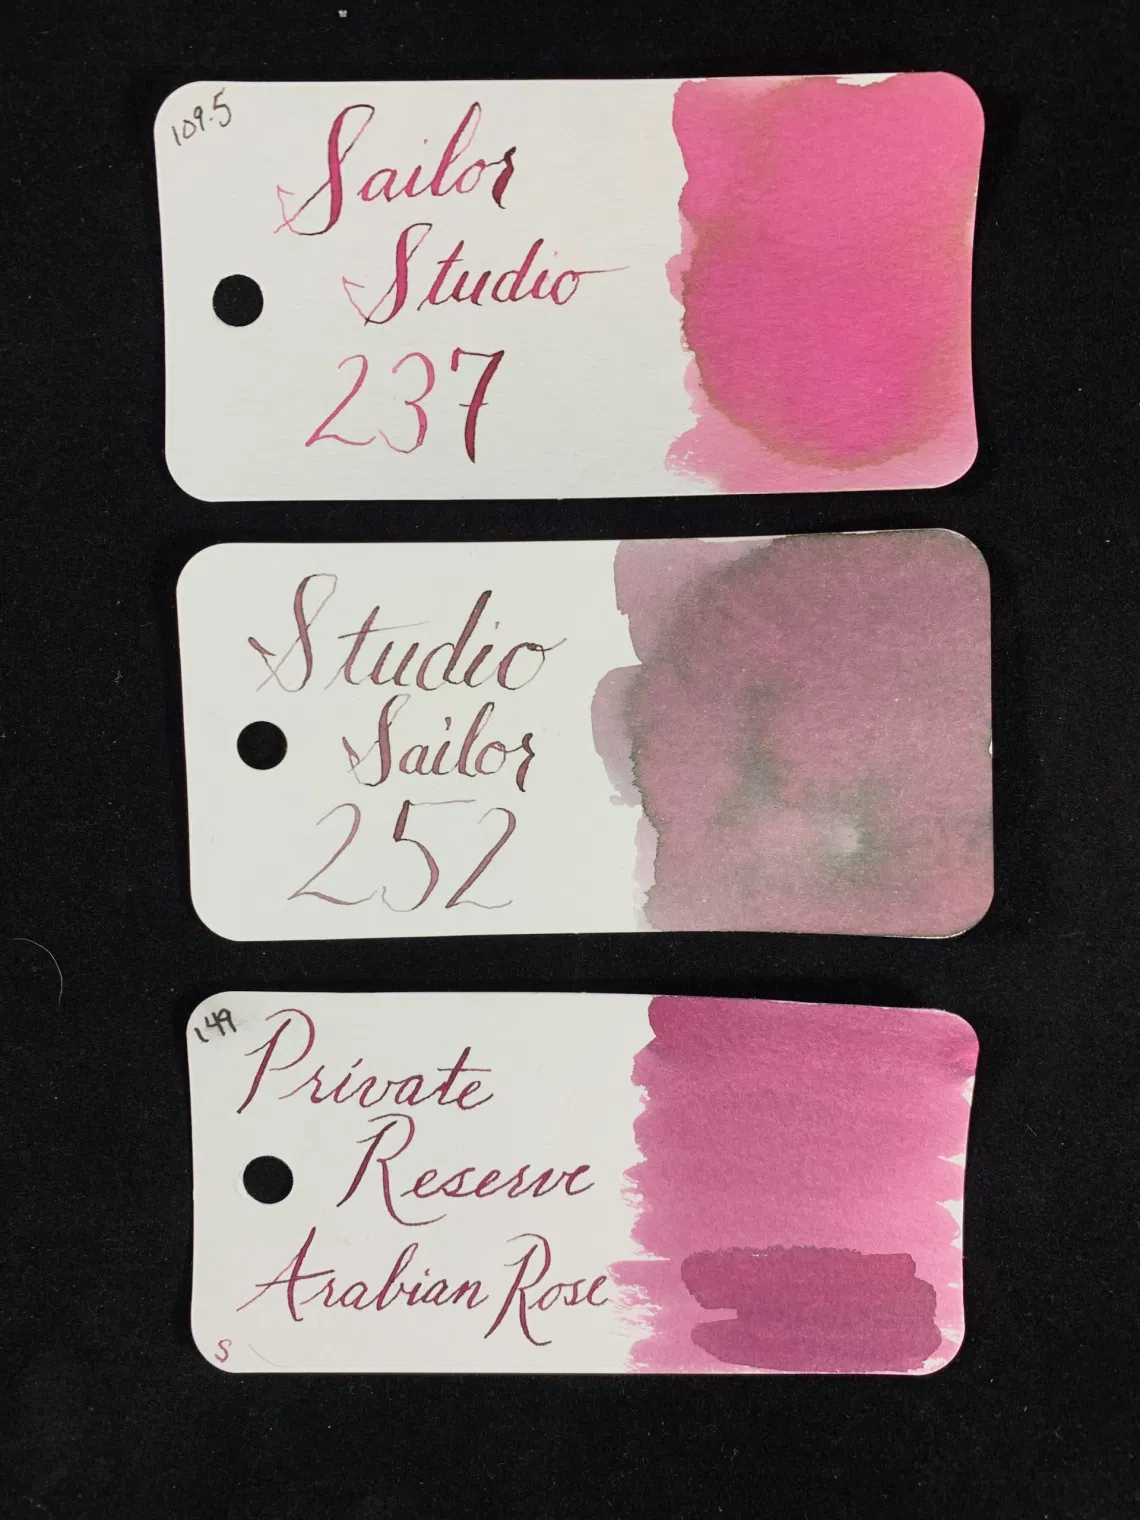 109.5
Sailor
Studio
237
Studio
Sailor
252
149
Private
Reserve
Arabian Rose
S